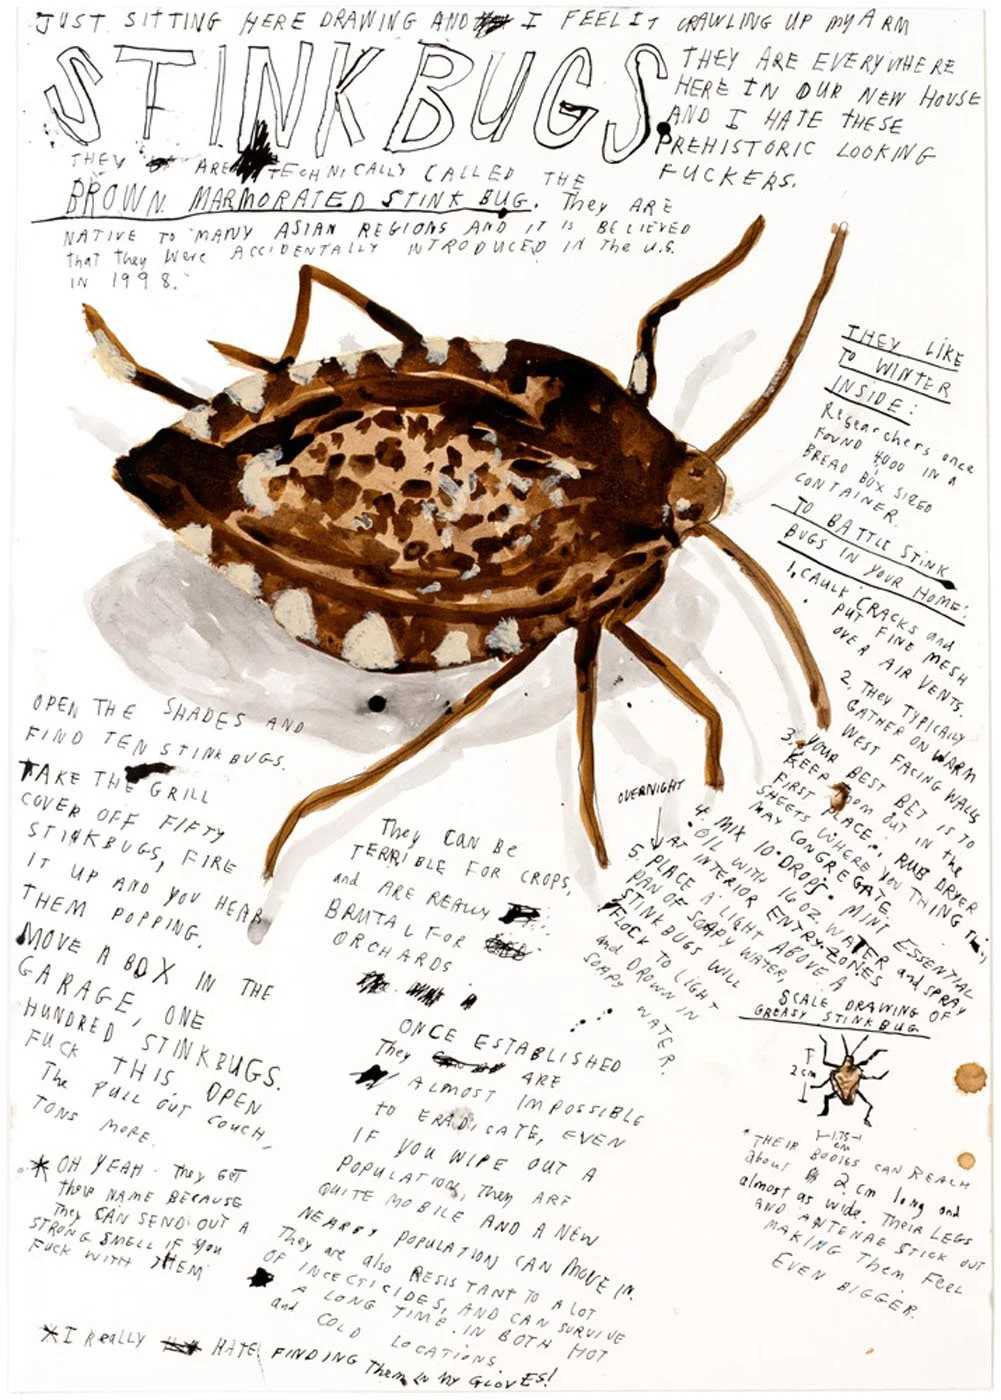 JUST SITTING HERE DRAWING AND I FEEL IT CRAWLING UP MY ARM
STINK BUGS.
THEY ARE EVERYWHERE
HERE IN OUR NEW HOUSE
AND I HATE THESE
PREHISTORIC LOOKING
FUCKERS.
THEY ARE TECHNICALLY CALLED THE
BROWN MARMORATED STINK BUG. They ARE
NATIVE TO MANY ASIAN REGIONS AND IT IS BELIEVED
that they were ACCIDENTALLY INTRODUCED IN The U.S.
IN 1998.
THEY LIKE
TO WINTER
INSIDE:
Researchers once
FOUND 4000 IN A
BREAD BOX SIZED
CONTAINER.
TO BATTLE STINK
BUGS IN YOUR HOME:
1. CAULK CRACKS and
PUT FINE MESH
OVER AIR VENTS.
2. They TYPICALLY
GATHER ON WARM
WEST FACING WALLS
3. YOUR BEST BET IS TO
KEEP them OUT IN the
FIRST PLACE. RUB DRYER
SHEETS WHERE YOU THING They
MAY CONGREGATE.
4. MIX 10 DROPS MINT ESSENTIAL
OIL WITH 16 OZ. WATER and SPRAY
AT INTERIOR ENTRY ZONES
OVERNIGHT
5. PLACE A LIGHT ABOVE A
PAN OF SOAPY WATER,
STINKBUGS WILL
FLOCK TO LIGHT
and DROWN IN
SOAPY WATER.
SCALE DRAWING OF
GREASY STINKBUG
2 cm
1.75
cm
THEIR BODIES CAN REACH
about 2 cm long and
almost as wide. Their LEGS
AND ANTENAE STICK OUT
MAKING Them FEEL
EVEN BIGGER.
OPEN THE SHADES AND
FIND TEN STINKBUGS.
TAKE THE GRILL
COVER OFF FIFTY
STINKBUGS, FIRE
IT UP AND YOU HEAR
THEM POPPING.
MOVE A BOX IN THE
GARAGE, ONE
HUNDRED STINKBUGS.
FUCK THIS. OPEN
The PULL OUT COUCH,
TONS MORE.
* OH YEAH. They GET
their NAME BECAUSE
They CAN SEND OUT A
STRONG SMELL IF YOU
FUCK WITH THEM
They CAN Be
TERRIBLE FOR CROPS,
and ARE REALLY
BRUTAL FOR
ORCHARDS
ONCE ESTABLISHED
They ARE
ALMOST IMPOSSIBLE
to ERADICATE, EVEN
IF YOU WIPE OUT A
POPULATION, They ARE
QUITE MOBILE AND A NEW
NEARBY POPULATION CAN MOVE IN.
They are also RESISTANT TO A LOT
OF INCECTICIDES, AND CAN SURVIVE
A LONG TIME IN BOTH HOT
and COLD LOCATIONS.
* I Really HATE FINDING Them IN MY GLOVES!